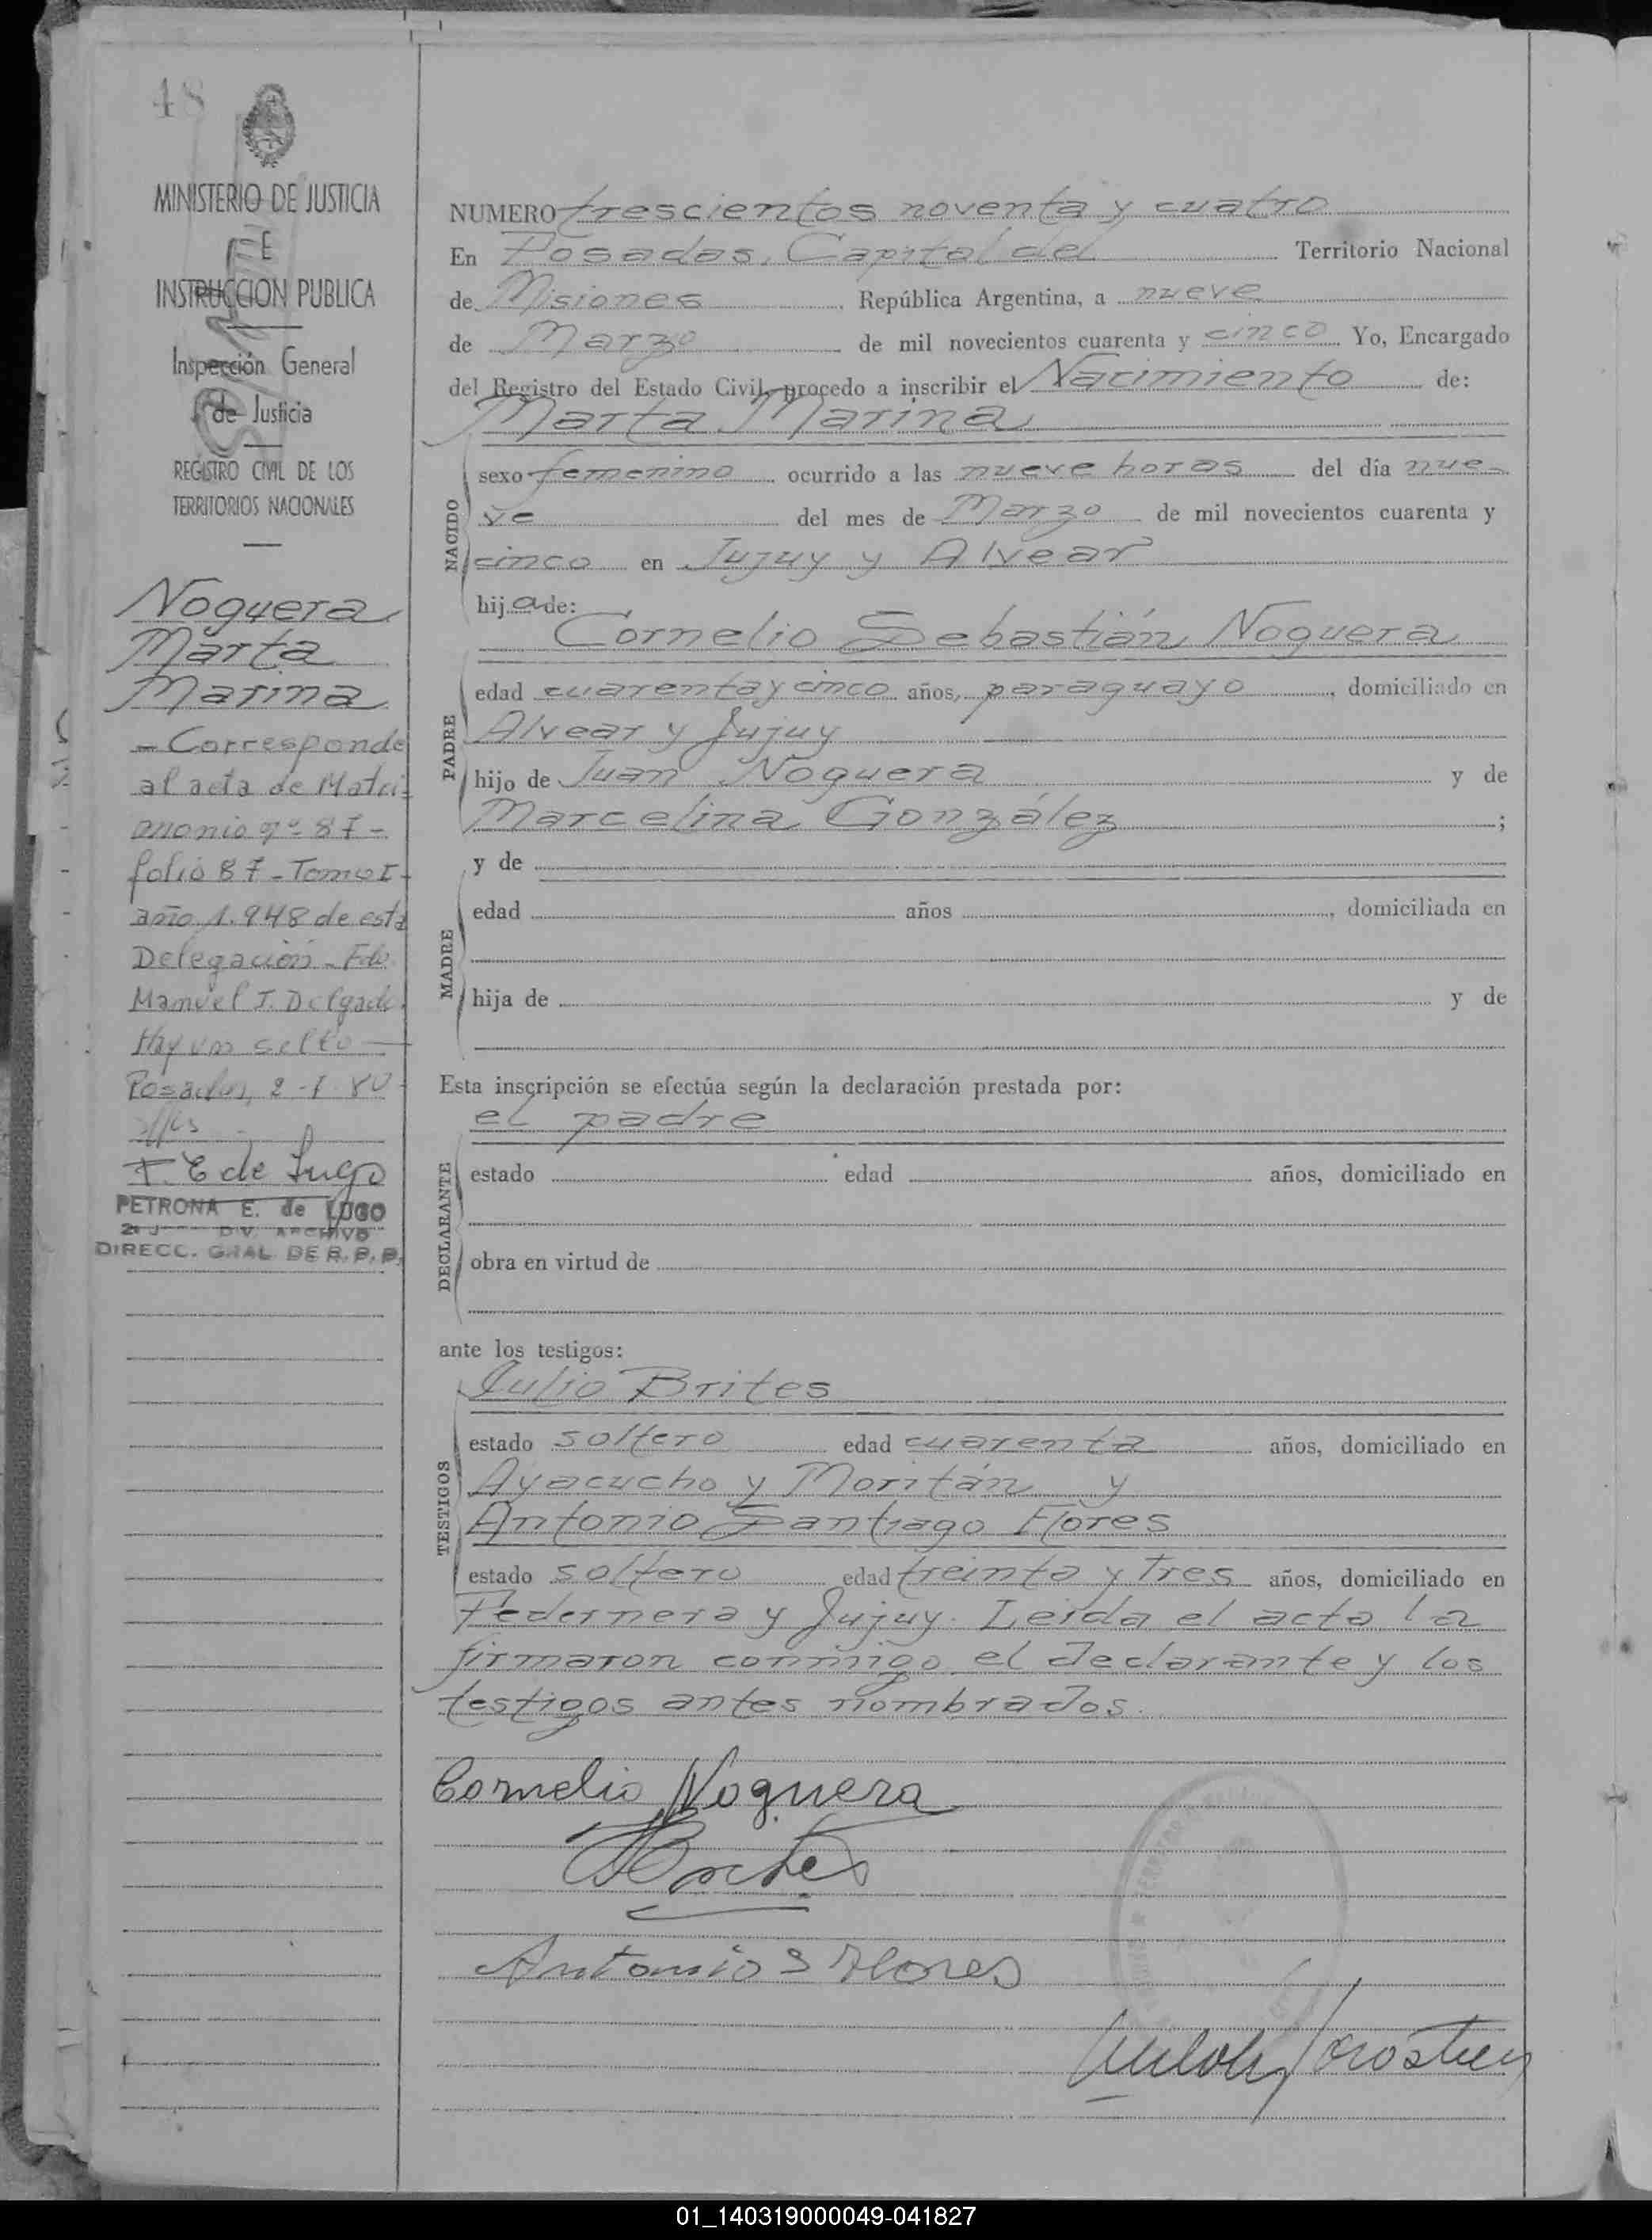 48
MINISTERIO DE JUSTICIA
E
INSTRUCCION PUBLICA
Inspección General
de Justicia
REGISTRO CIVIL DE LOS
TERRITORIOS NACIONALES
Noguera
Marta
Marina
- Corresponde
al acta de Matri-
monio nº 87 -
folio 87 - Tomo I -
año 1.948 de esta
Delegación - Fdo
Manuel J. Delgado.
Hay un sello
Posadas, 2-1-80
P. E de Lugo
PETRONA E. de LUGO
DIV. ARCHIVO
DIRECC. GRAL DE R. P. P.
NUMERO trescientos noventa y cuatro
En Posadas, Capital del Territorio Nacional
de Misiones República Argentina, a nueve
de Marzo de mil novecientos cuarenta y cinco Yo, Encargado
del Registro del Estado Civil, procedo a inscribir el Nacimiento de:
Marta Marina
NACIDO
sexo femenino ocurrido a las nueve horas del día nue-
ve del mes de Marzo de mil novecientos cuarenta y
cinco en Jujuy y Alvear
hija de:
Cornelio Sebastián Noguera
PADRE
edad cuarenta y cinco años, paraguayo, domiciliado en
Alvear y Jujuy
hijo de Juan Noguera y de
Marcelina González ;
y de
MADRE
edad años , domiciliada en
hija de y de
Esta inscripción se efectúa según la declaración prestada por:
el padre
DECLARANTE
estado edad años, domiciliado en
obra en virtud de
ante los testigos:
Julio Brites
TESTIGOS
estado soltero edad cuarenta años, domiciliado en
Ayacucho y Moritán y
Antonio Santiago Flores
estado soltero edad treinta y tres años, domiciliado en
Pedernera y Jujuy. Leida el acta la
firmaron conmigo el declarante y los
testigos antes nombrados.
Cornelio Noguera
Brites
Antonio S Flores
01_140319000049-041827